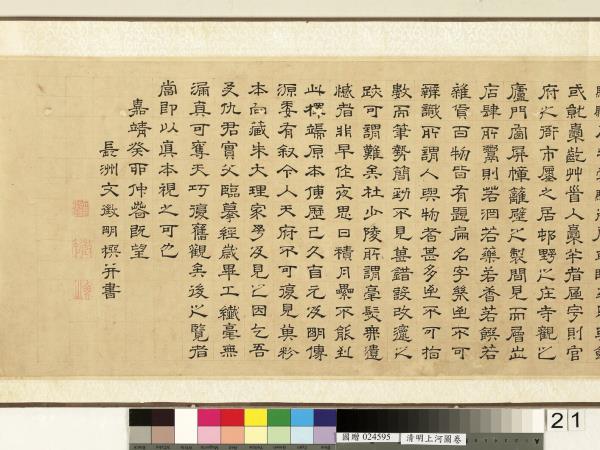 屋宇則官
府之衙市廛之居邨野之庄寺觀之
廬門窗屏幛籬壁之製間見而層出
店肆所鬻則若酒若藥若香若饌若
雜貨百物皆有題扁名字纖至不可
辨識所謂人與物者甚多至不可指
數而筆勢簡勁不見其錯誤改竄之
跌可謂難矣杜少陵所謂毫髮無遺
憾者非早作夜思日積月纍不能到
此擇端原本傳歷已久自元及明傳
源委有叙今入天府不可復見其粉
本向藏朱大理家予及見之因乞吾
友仇君實父臨摹經歲畢工纖毫無
漏真可奪天巧復舊觀矣後之覽者
當即以真本視之可也
嘉靖癸卯仲春既望
長洲文徵明撰并書
國贈 024595 清明上河圖卷
21